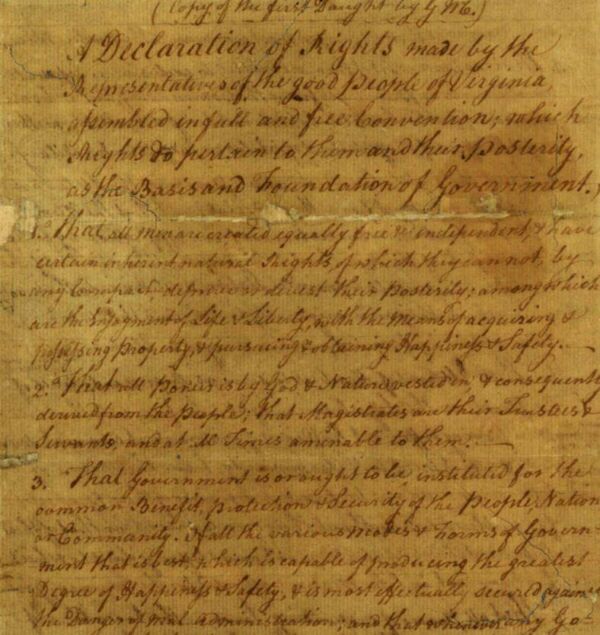 (Copy of the first Daught by G M.)
A Declaration of Rights made by the
Representatives of the good people of Virginia,
assembled in full and free Convention; which
Rights do pertain to them and their Posterity,
as the Basis and Foundation of Government.
1. That all men are created equally free & independent, & have
certain inherent natural Rights, of which they cannot, by
any Compact, deprive or divest their Posterity; among which
are the Enjoyment of Life & Liberty, with the Means of acquiring &
possessing Property, & pursueing & obtaining Happiness & Safety.
2. That all Power is by God & Nature vested in, & consequently
derived from the People; that Magistrates are their Trustees &
Servants, and at all Times amenable to them.
3. That Government is or ought to be instituted for the
common Benefit, protection & Security of the People, Nation
or Community. Of all the various Modes & Forms of Govern-
ment that is best, which is capable of producing the greatest
Degree of Happiness & Safety, & is most effectually secured against
the Danger of mal-administration; and that whenever any Go-